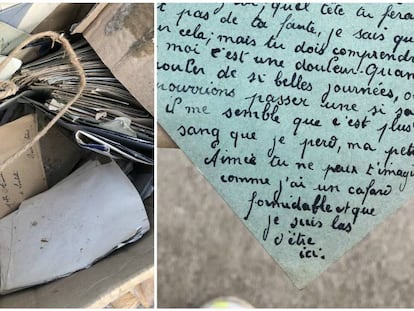 pas de ta faute, je sais qu
cela, mais tu dois comprend
moi c'est une douleur. Quan
couler de si belles journées, o
pourrions passer une si jo
il me semble que c'est plus
sang que je perd, ma peti
Aimée tu ne peux t'imagi
comme j'ai un cafard
formidable et que
je suis las
d'être
ici.